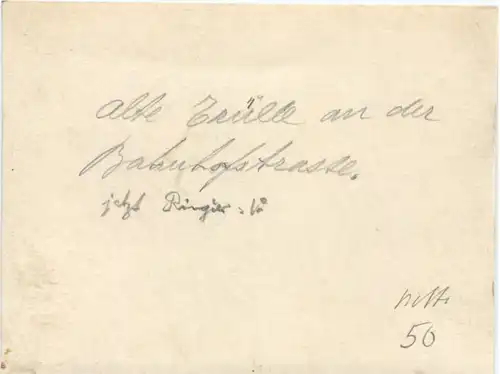 alte Trülle an der
Bahnhofstrasse.
jetzt Ringier
netto
50